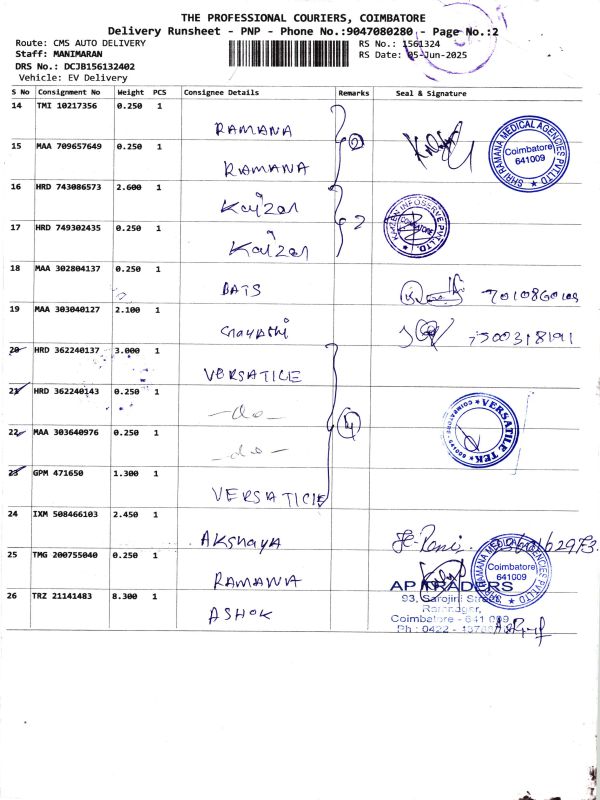 THE PROFESSIONAL COURIERS, COIMBATORE
Delivery Runsheet - PNP - Phone No.:9047080280 - Page No.:2
Route: CMS AUTO DELIVERY
RS No.: 1561324
Staff: MANIMARAN
RS Date: 05-Jun-2025
DRS No.: DCJB156132402
Vehicle: EV Delivery
S No Consignment No Weight PCS Consignee Details Remarks Seal & Signature
14 TMI 10217356 0.250 1 RAMANA
2
SHRI RAMANA MEDICAL AGENCIES PVT LTD
Coimbatore
641009
15 MAA 709657649 0.250 1 RAMANA
16 HRD 743086573 2.600 1 Kaizan
2
17 HRD 749302435 0.250 1 Kaizan
18 MAA 302804137 0.250 1 BATS
19 MAA 303040127 2.100 1 Gayathi
7500318191
20 HRD 362240137 3.000 1 VERSATILE
21 HRD 362240143 0.250 1 -do-
4
VERSATILE TEK
22 MAA 303640976 0.250 1 -do-
23 GPM 471650 1.300 1 VERSATILE
24 IXM 508466103 2.450 1 AKSHAYA
25 TMG 200755040 0.250 1 RAMANA
RAMANA MEDICAL AGENCIES PVT LTD
Coimbatore
641009
26 TRZ 21141483 8.300 1 ASHOK
AP TRADERS
93, Sarojini Street
Ramnagar,
Coimbatore - 641 009
Ph : 0422 -